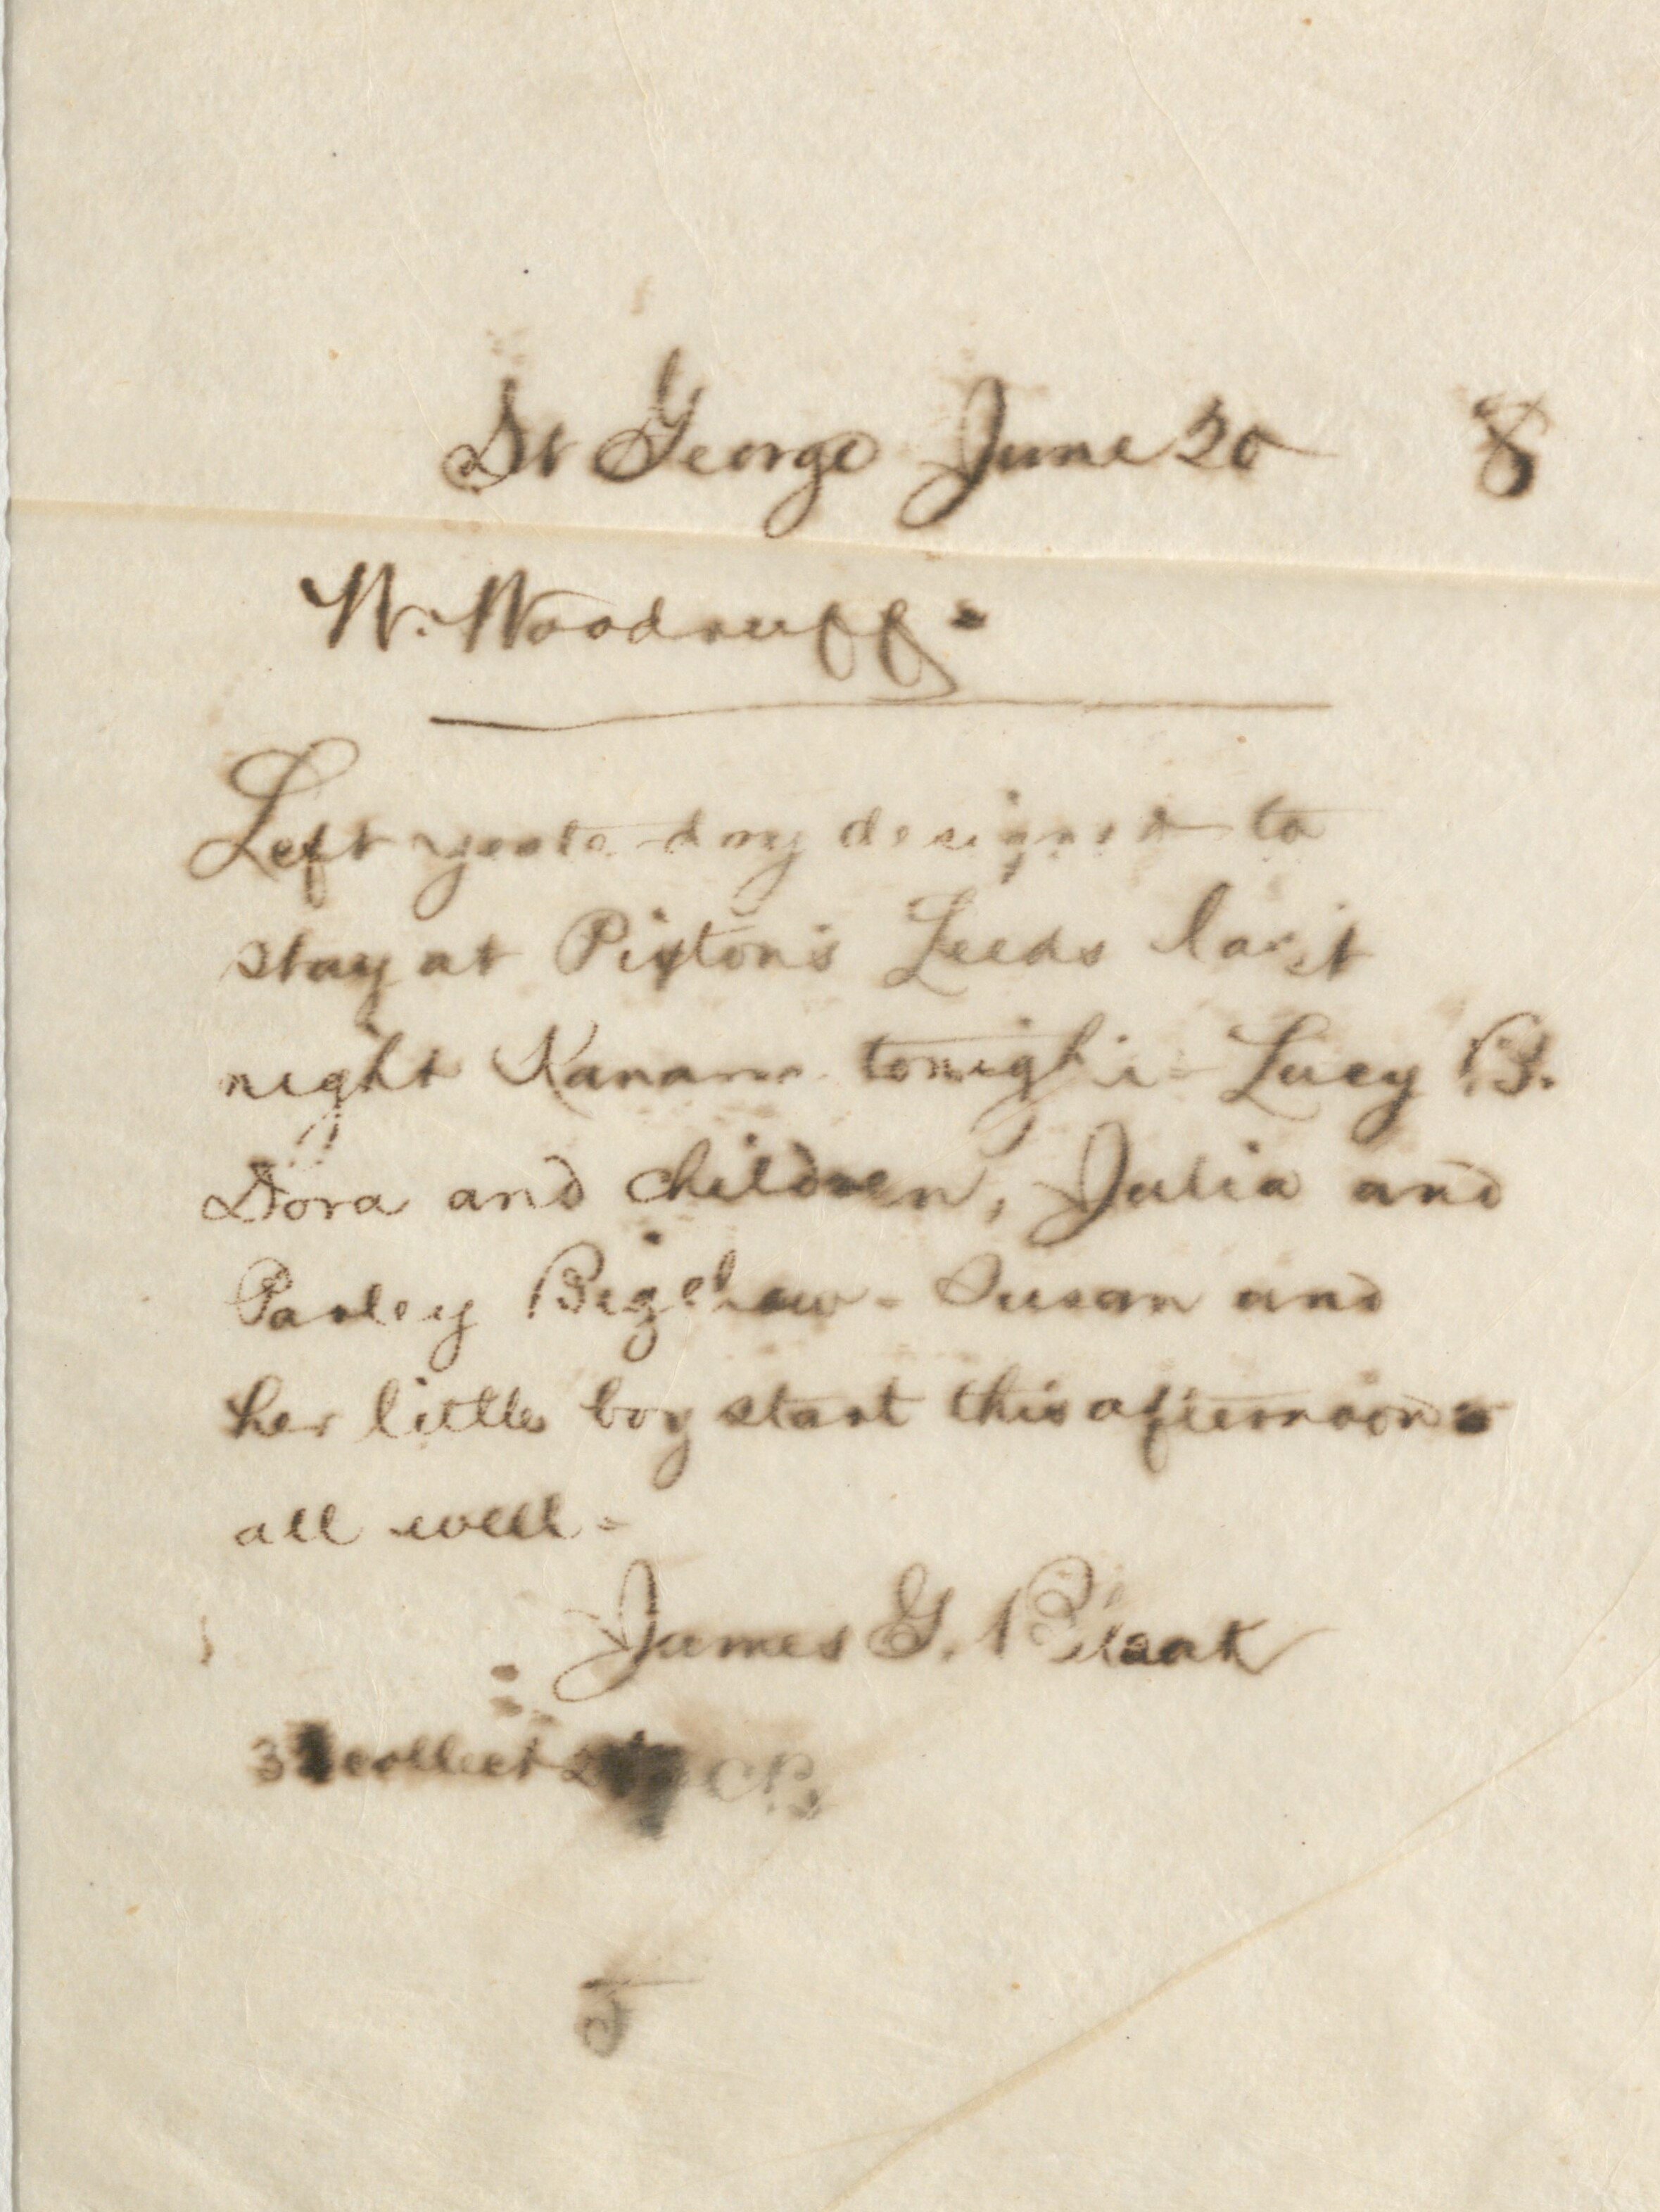 St George June 20 8
W. Woodruff-
Left yesterday designed to
stay at Pixton's Leeds last
night Kanarra tonight - Lucy B.
Dora and children, Julia and
Parley Bigelow - Susan and
her little boy start this afternoon -
all well -
James G. Bleak
collect